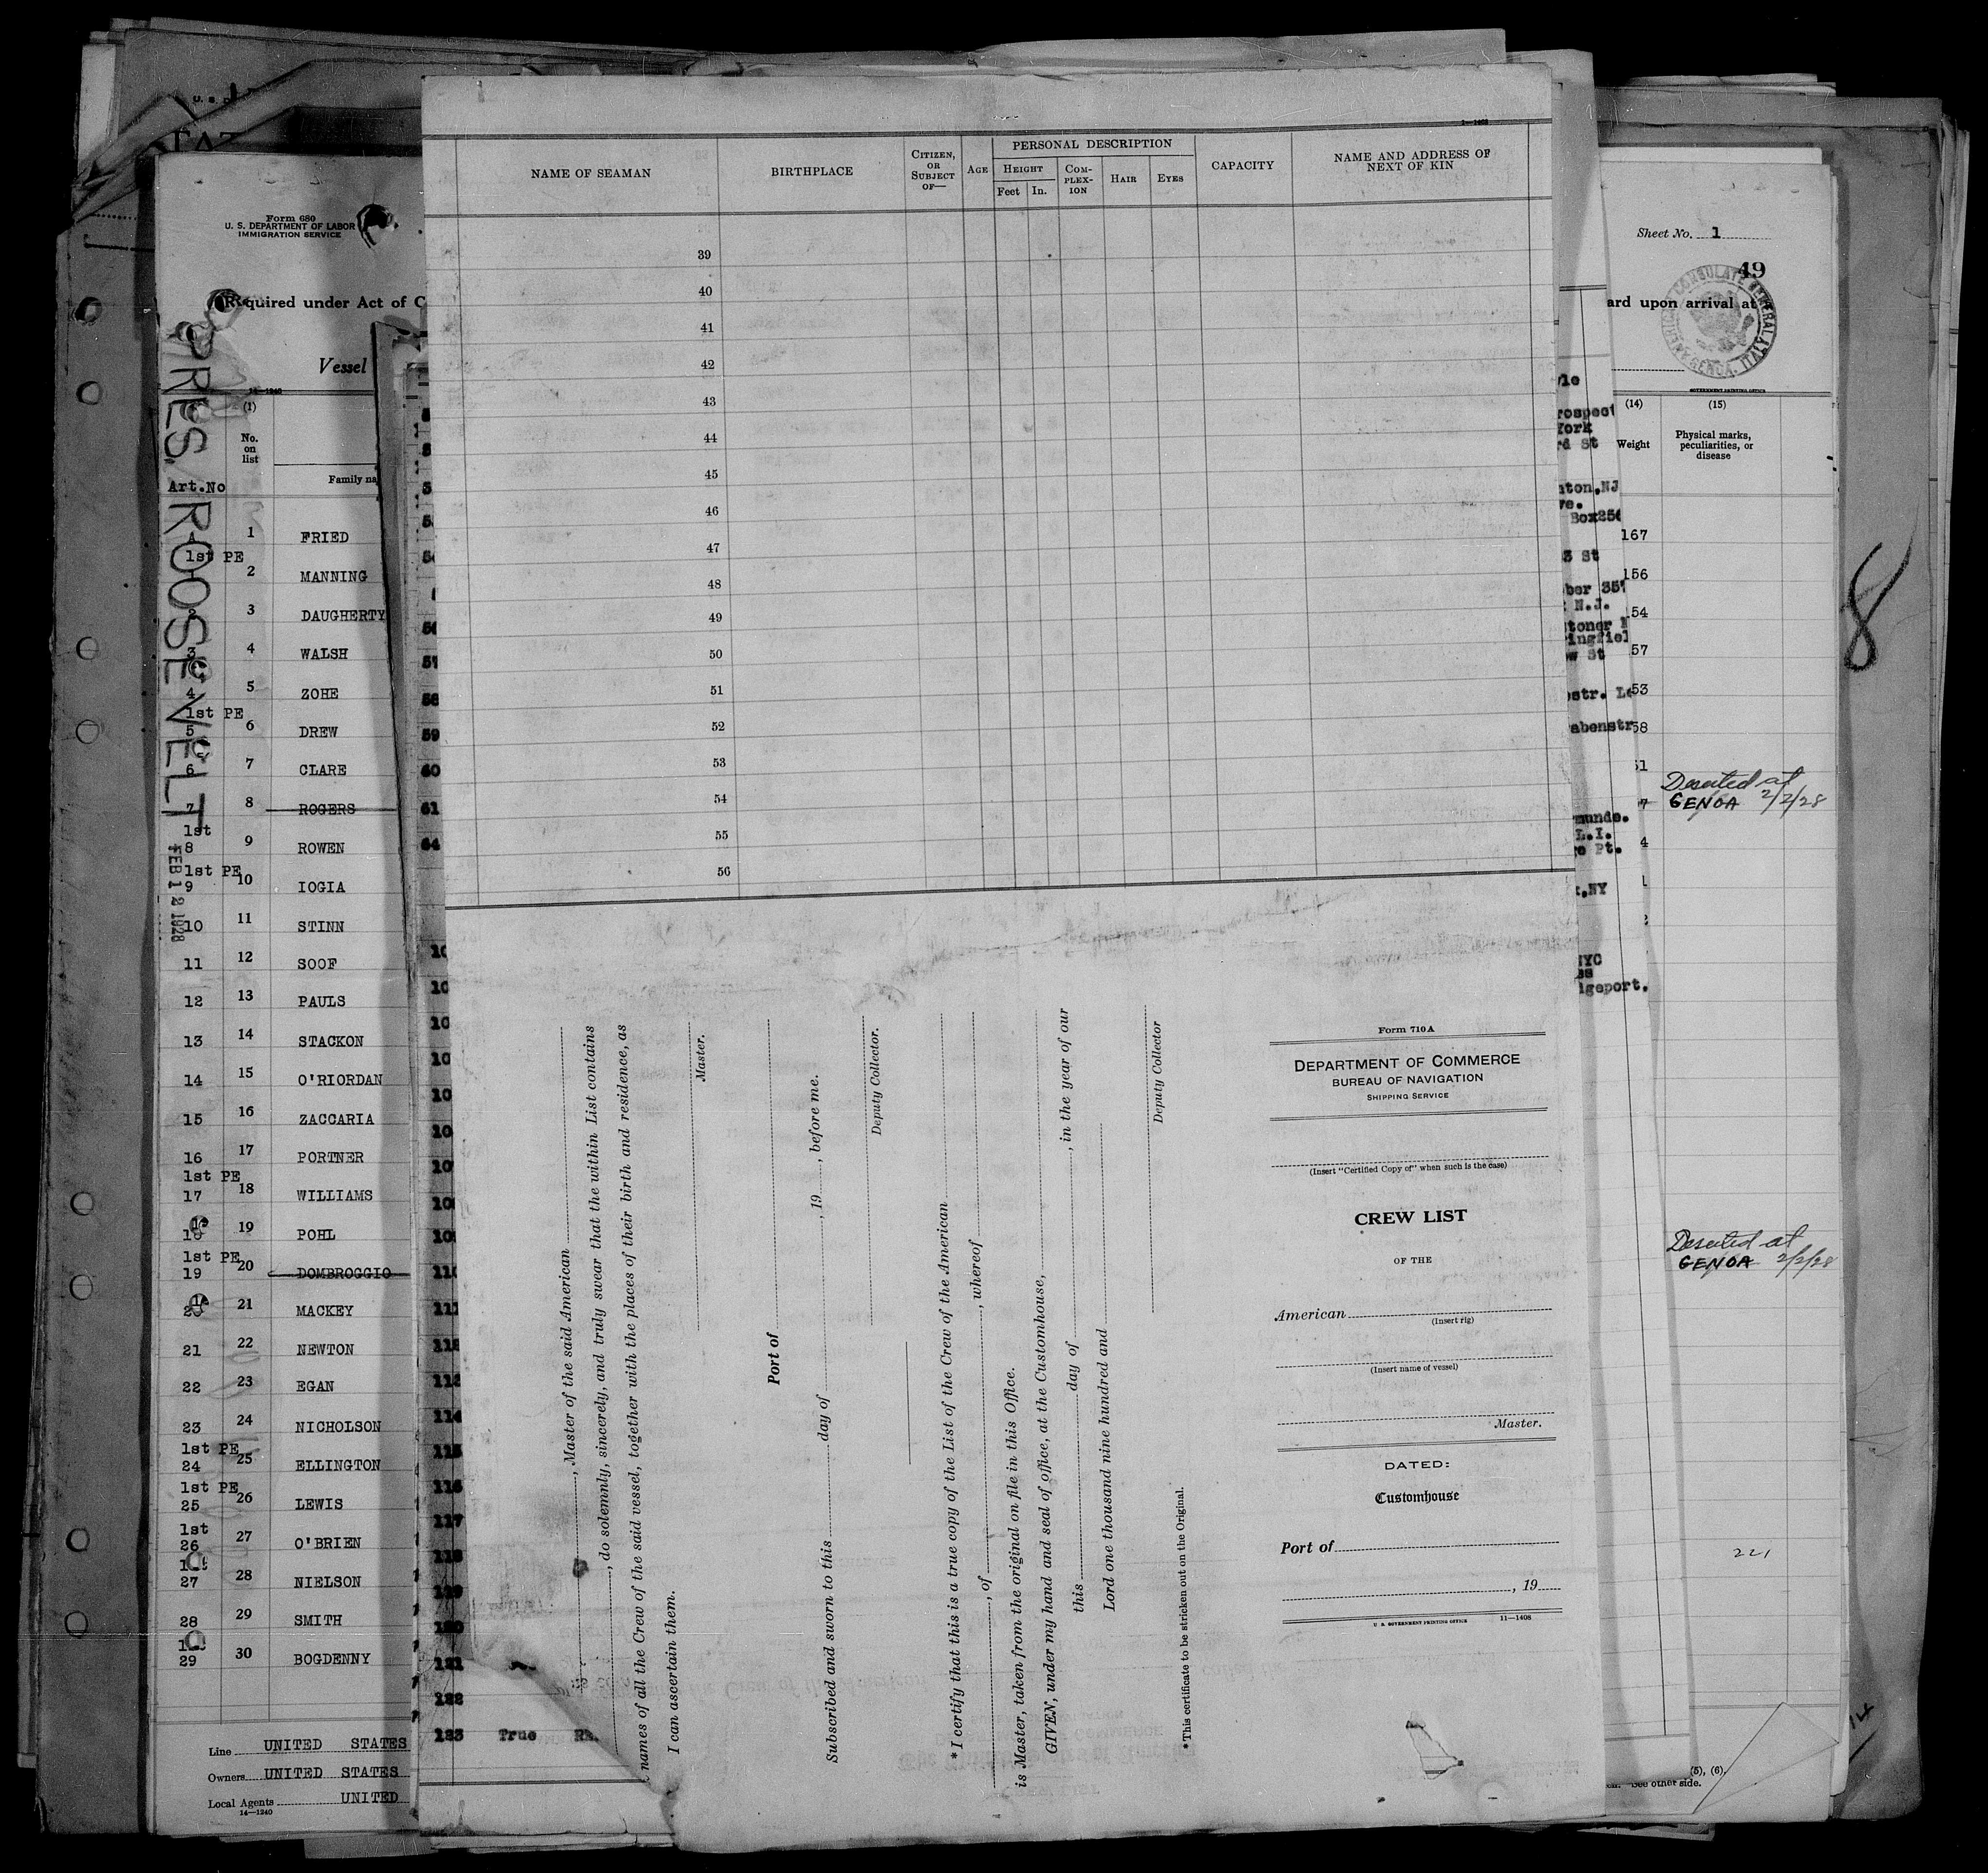 Form 680
U. S. DEPARTMENT OF LABOR
IMMIGRATION SERVICE
Required under Act of C
Vessel
14—1240
(1)
No.
on
list
Art.No
Family na
PRES. ROOSEVELT
FEB 12 1928
1 FRIED
1st PE
2 MANNING
3 DAUGHERTY
3 4 WALSH
4 5 ZOHE
1st PE
5 6 DREW
6 7 CLARE
7 8 ROGERS
1st
8 9 ROWEN
1st PE
9 10 IOGIA
10 11 STINN
11 12 SOOF
12 13 PAULS
13 14 STACKON
14 15 O'RIORDAN
15 16 ZACCARIA
16 17 PORTNER
1st PE
17 18 WILLIAMS
19 POHL
1st PE
19 20 DOMBROGGIO
21 MACKEY
21 22 NEWTON
22 23 EGAN
23 24 NICHOLSON
1st PE
24 25 ELLINGTON
1st PE
25 26 LEWIS
1st
26 27 O'BRIEN
27 28 NIELSON
28 29 SMITH
29 30 BOGDENNY
Line UNITED STATES
Owners UNITED STATES
Local Agents UNITED
14—1240
NAME OF SEAMAN
BIRTHPLACE
CITIZEN,
OR
SUBJECT
OF—
AGE
PERSONAL DESCRIPTION
HEIGHT
Feet In.
COM-
PLEX-
ION
HAIR
EYES
CAPACITY
NAME AND ADDRESS OF
NEXT OF KIN
39
40
41
42
43
44
45
46
47
48
49
50
51
52
53
54
55
56
57
58
59
60
61
64
111
114
115
116
117
122
123 True
, Master of the said American
, do solemnly, sincerely, and truly swear that the within List contains
names of all the Crew of the said vessel, together with the places of their birth and residence, as
I can ascertain them.
Master.
Port of
Subscribed and sworn to this day of , 19 , before me.
Deputy Collector.
*I certify that this is a true copy of the List of the Crew of the American
, of , whereof
is Master, taken from the original on file in this Office.
GIVEN, under my hand and seal of office, at the Customhouse,
this day of , in the year of our
Lord one thousand nine hundred and
Deputy Collector
*This certificate to be stricken out on the Original.
Form 710A
DEPARTMENT OF COMMERCE
BUREAU OF NAVIGATION
SHIPPING SERVICE
(Insert "Certified Copy of" when such is the case)
CREW LIST
OF THE
American
(Insert rig)
(Insert name of vessel)
Master.
DATED:
Customhouse
Port of
, 19
U. S. GOVERNMENT PRINTING OFFICE 11—1408
Sheet No. 1
49
ard upon arrival at
AMERICAN CONSULATE GENERAL GENOA, ITALY
GOVERNMENT PRINTING OFFICE
(14)
Weight
(15)
Physical marks,
peculiarities, or
disease
rospect
York
rd St
nton,NJ
Box256
3 St
ber 357
N.J.
toner
ingfiel
w St
str.
abenstr
munde.
L.I.
Pt.
,NY
NYC
dgeport.
167
156
54
57
53
58
51
Deserted at
GENOA 2/2/28
Deserted at
GENOA 2/2/28
221
8
14
(5), (6).
See other side.